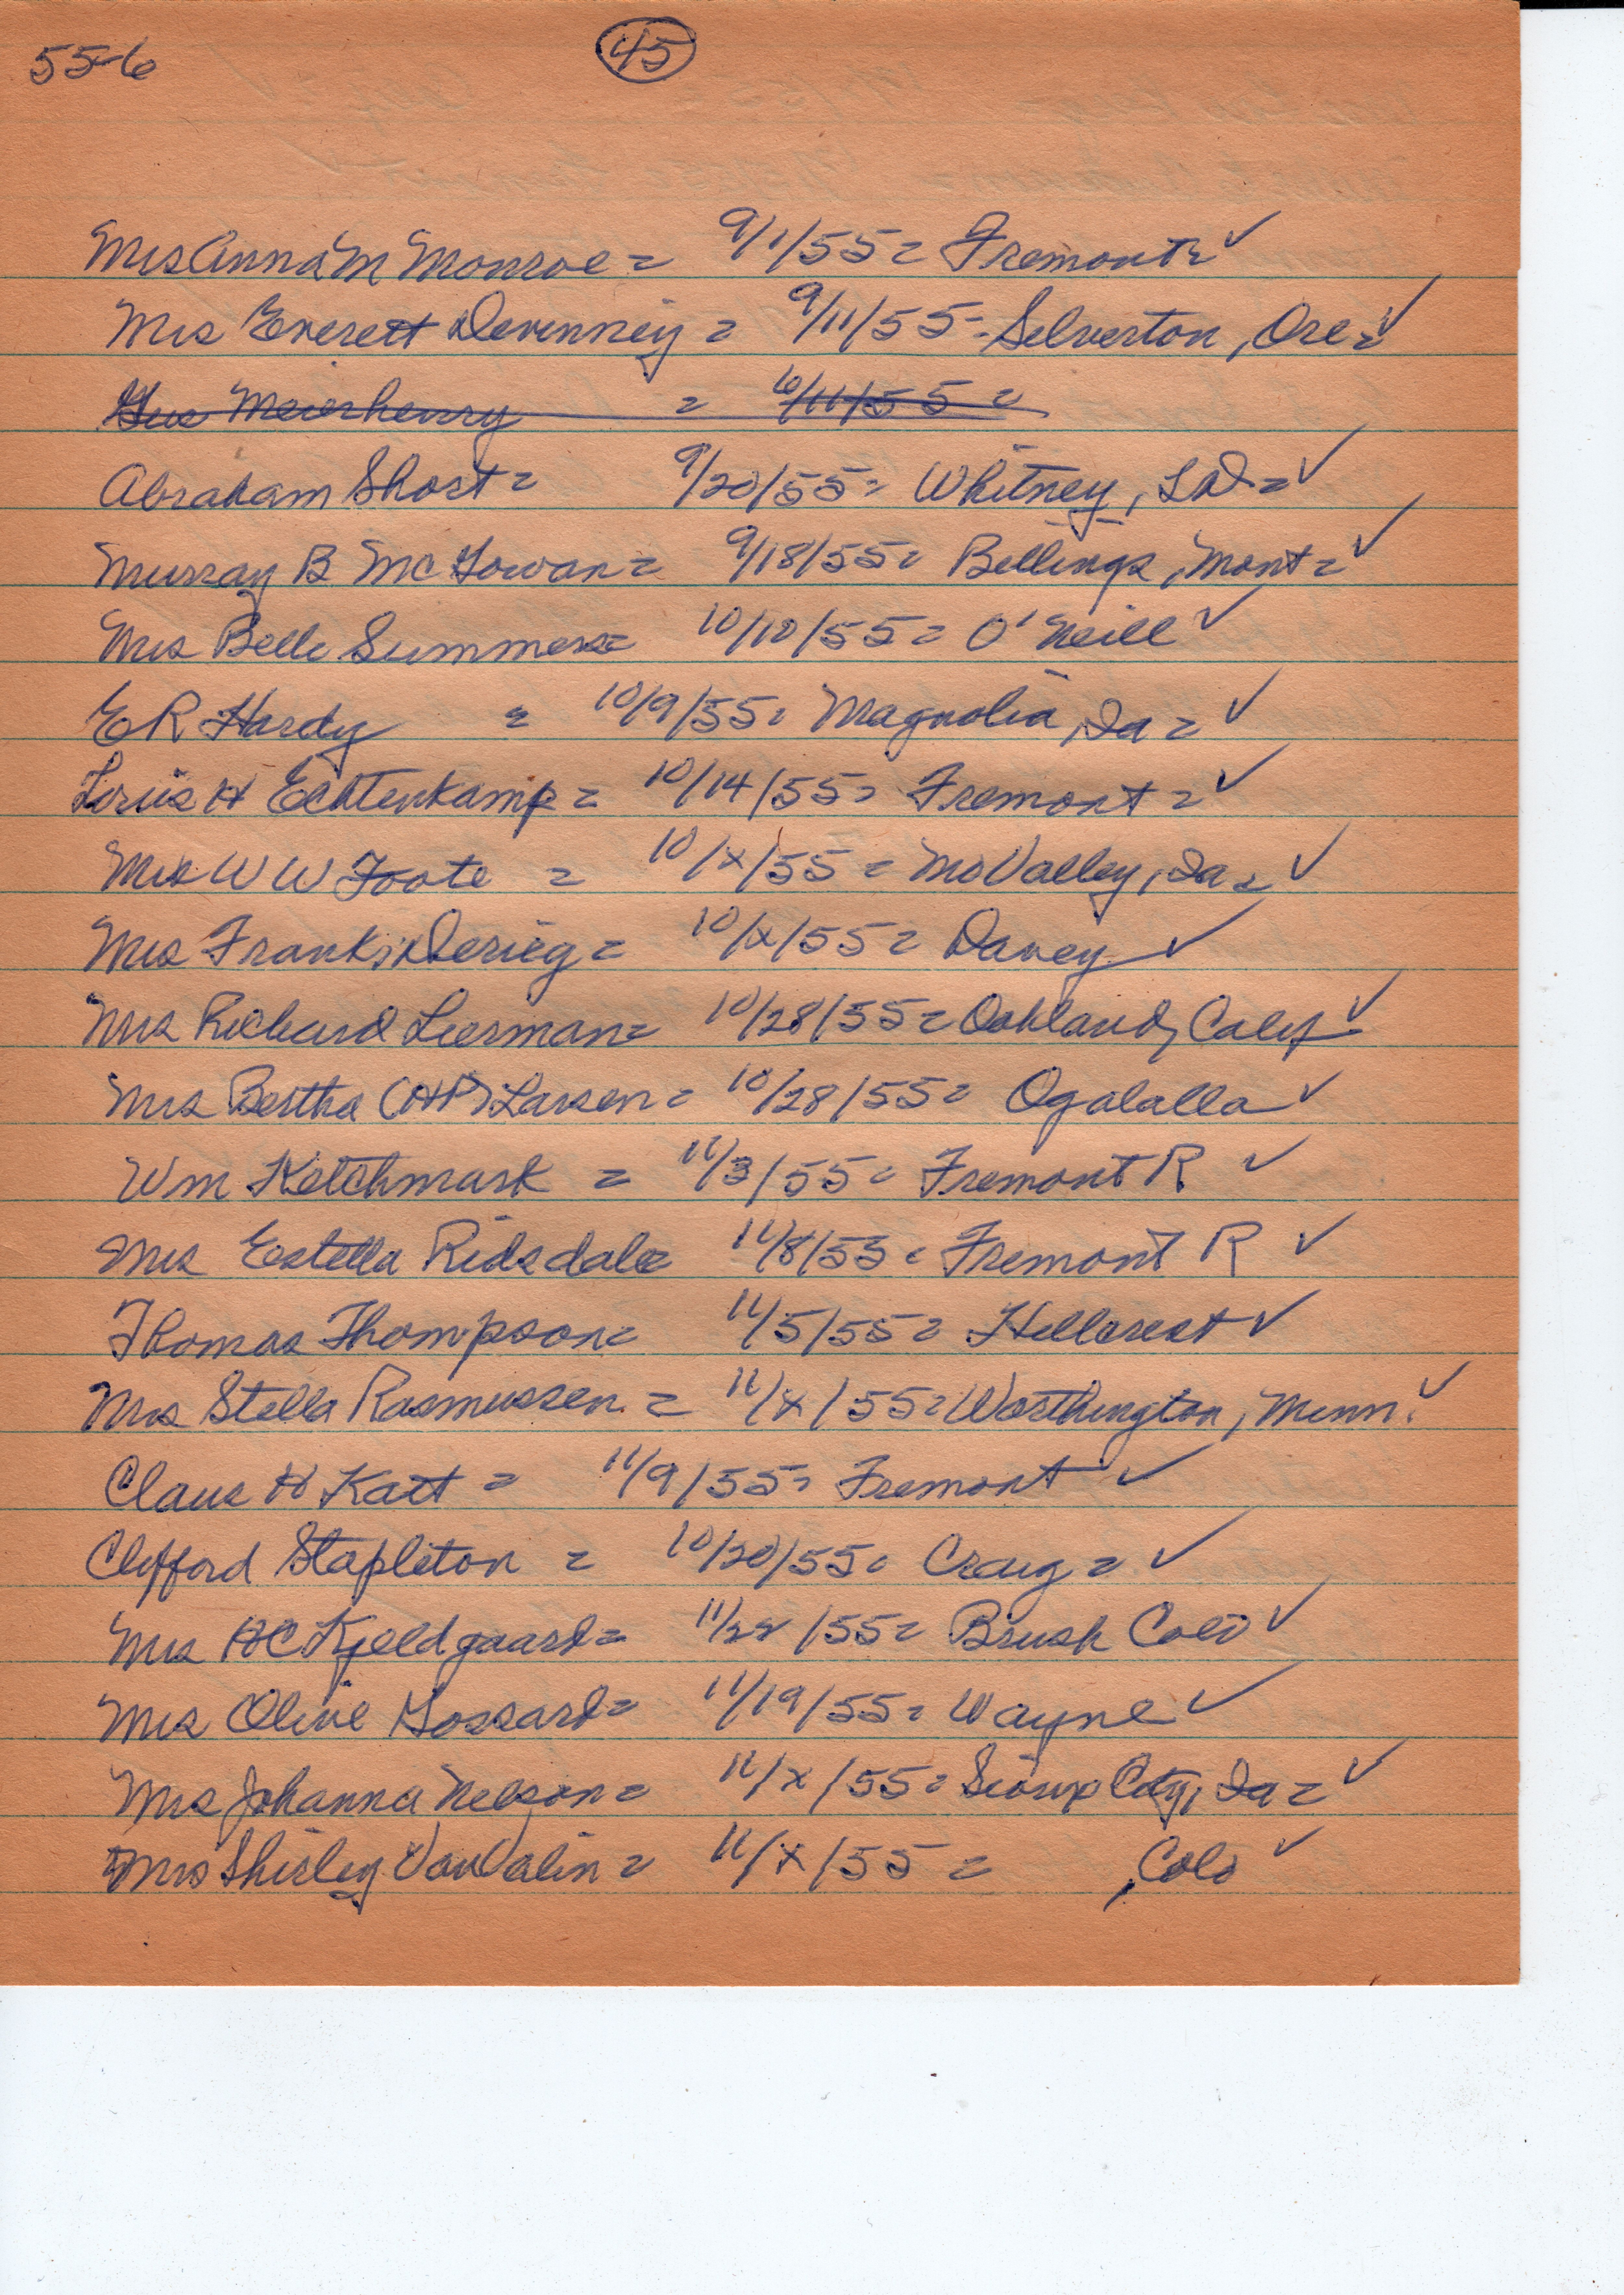 55-6 (45)
Mrs Anna M Monroe = 9/1/55 = Fremont = ✓
Mrs Everett Devenney = 9/11/55 - Silverton, Ore = ✓
Gus Meierhenry = 10/11/55 =
Abraham Short = 9/20/55 = Whitney, = ✓
Murray B McGowan = 9/18/55 = Billings, Mont = ✓
Mrs Belle Summers = 10/10/55 = O'Neill ✓
E R Hardy = 10/9/55 = Magnolia, Ia = ✓
Louis H Echtenkamp = 10/14/55 = Fremont = ✓
Mrs W W Foote = 10/x/55 = Mo Valley, Ia = ✓
Mrs Frank Derieg = 10/x/55 = Davey ✓
Mrs Richard Lierman = 10/28/55 = Oakland, Calif ✓
Mrs Bertha (HP) Larsen = 10/28/55 = Ogalalla ✓
Wm Ketchmark = 11/3/55 = Fremont R ✓
Mrs Estella Ridsdale 11/8/55 = Fremont R ✓
Thomas Thompson = 11/5/55 = Hillcrest ✓
Mrs Stella Rasmussen = 11/x/55 = Worthington, Minn. ✓
Claus H Katt = 11/9/55 = Fremont ✓
Clifford Stapleton = 10/20/55 = Craig = ✓
Mrs HC Kjeldgaard = 11/22/55 = Brush Colo ✓
Mrs Olive Gossard = 11/19/55 = Wayne ✓
Mrs Johanna Nelson = 11/x/55 = Sioux City, Ia = ✓
Mrs Shirley VanValin = 11/x/55 = , Colo ✓